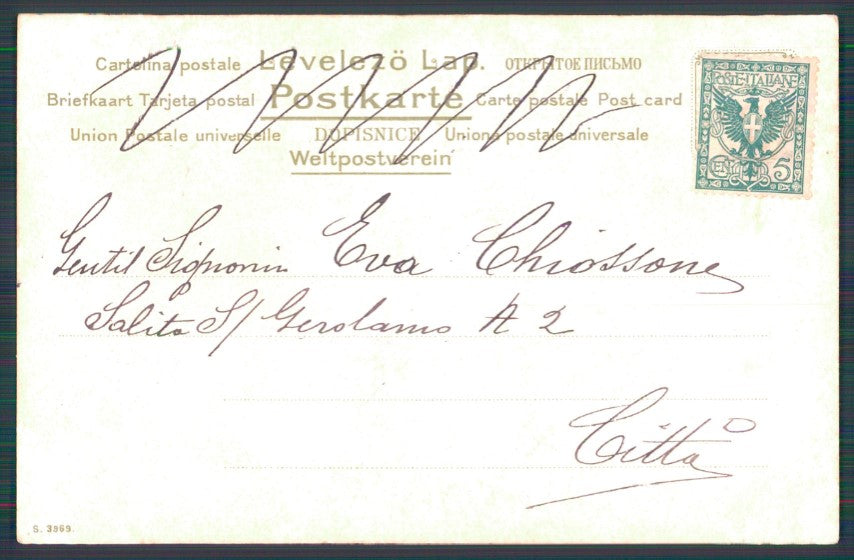 Cartolina postale Levelező Lap. ОТКРЫТОЕ ПИСЬМО
Briefkaart Tarjeta postal Postkarte Carte postale Post card
Union Postale universelle DOPISNICE Unione postale universale
Weltpostverein
POSTE·ITALIANE
CENT. 5
Gentil Signorin Eva Chiossone
Salita S/ Gerolamo A 2
Città
S. 3969.